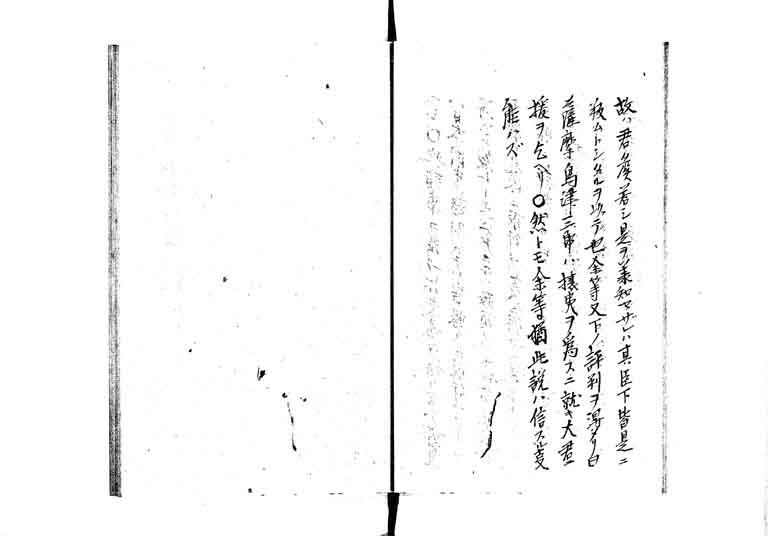 故ハ君侯若シ是ヲ承知セザレハ其臣下皆是ニ
叛ムトシタルヲ以テ也余等又下ノ評判ヲ得タリ曰
ク薩摩島津三郎ハ攘夷ヲ為スニ就キ大君ニ
援ヲ乞ヘリ〇然トモ余等猶此説ハ信スル叓
能ハズ